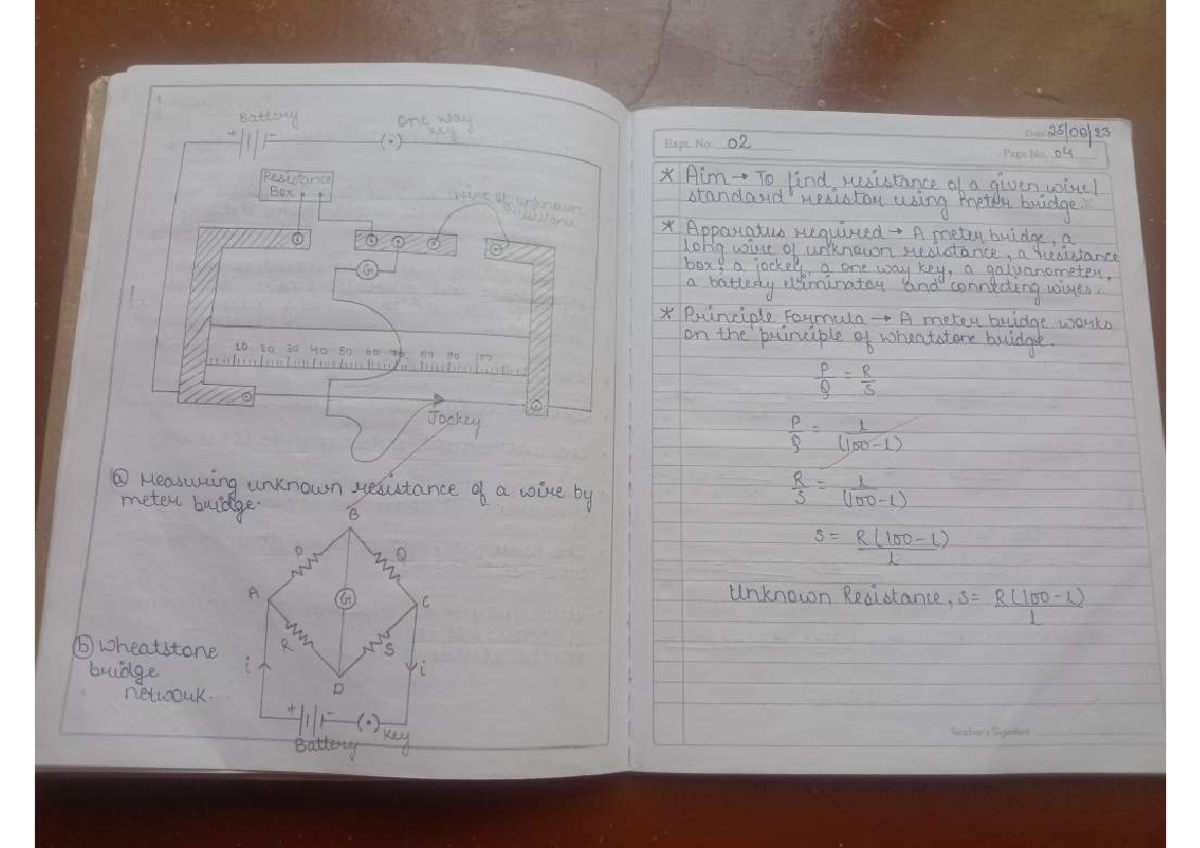 Battery
+ -
One way
key
Resistance
Box
Wire of unknown
resistance
G
10 20 30 40 50 60 70 80 90 100
Jockey
(a) Measuring unknown resistance of a wire by
meter bridge.
B
P Q
A G C
R S
D
i i
(b) Wheatstone
bridge
network.
+ -
Battery
Key
Date 25/00/23
Expt. No. 02
Page No. 04
* Aim → To find resistance of a given wire/
standard resistor using meter bridge.
* Apparatus required → A meter bridge, a
long wire of unknown resistance, a resistance
box, a jockey, a one way key, a galvanometer,
a battery eliminator and connecting wires.
* Principle Formula → A meter bridge works
on the principle of wheatstone bridge.
P/Q = R/S
P/Q = l/(100-l)
R/S = l/(100-l)
S = R(100-l)/l
Unknown Resistance, S = R(100-l)/l
Teacher's Signature